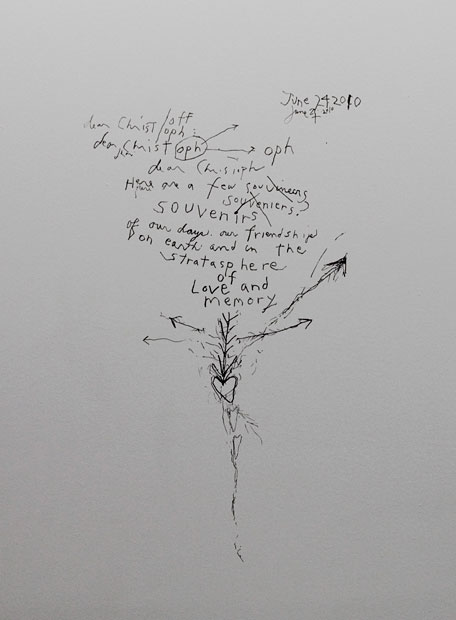 June 24 2010
June 24 2010
dear Christ/off
oph:
dear Christ oph → oph
dear Chrisoph
Here are a few souvineers
souveniers?
souvenirs
of our days. our friendship
on earth and in the
stratasphere
of
Love and
memory